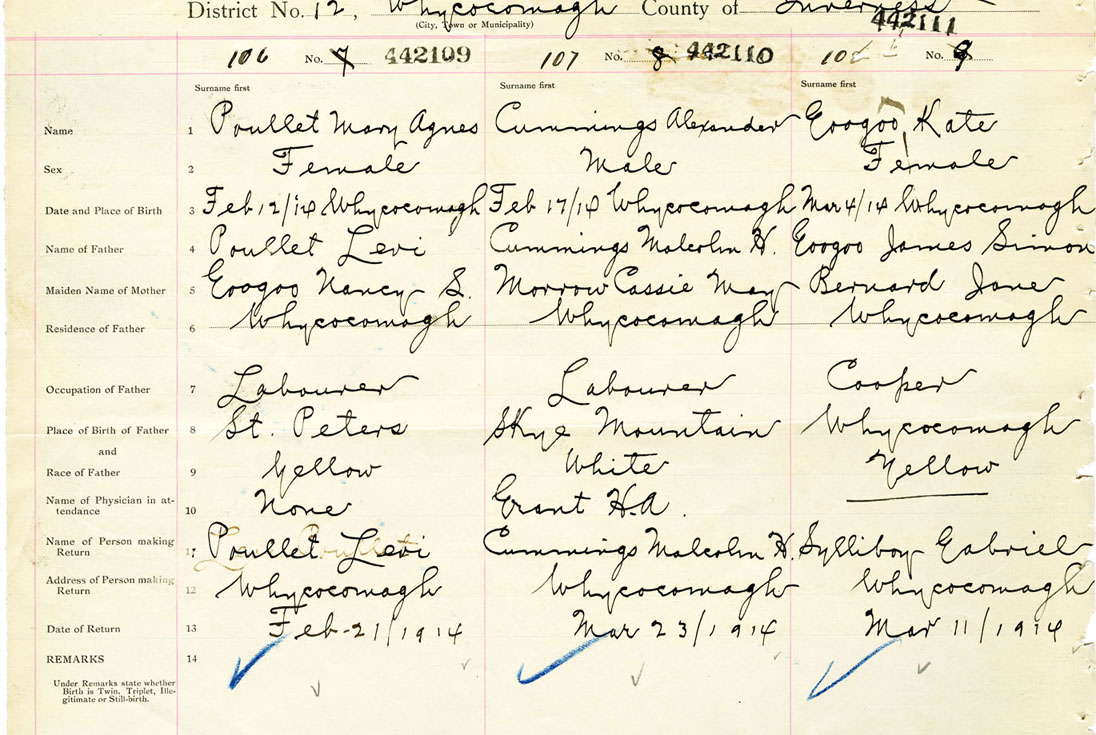 District No. 12, Whycocomagh County of Inverness
(City, Town or Municipality)
442111
106 No. 7 442109 107 No. 8 442110 No. 9
Surname first Surname first Surname first
Name 1 Poullet Mary Agnes Cummings Alexander Googoo, Kate
Sex 2 Female Male Female
Date and Place of Birth 3 Feb 12/14 Whycocomagh Feb 17/14 Whycocomagh Mar 4/14 Whycocomagh
Name of Father 4 Poullet Levi Cummings Malcolm H. Googoo James Simon
Maiden Name of Mother 5 Googoo Nancy S. Morrow Cassie May Bernard Jane
Residence of Father 6 Whycocomagh Whycocomagh Whycocomagh
Occupation of Father 7 Labourer Labourer Cooper
Place of Birth of Father 8 St. Peters Skye Mountain Whycocomagh
and
Race of Father 9 Yellow White Yellow
Name of Physician in at-
tendance 10 None Grant H.A.
Name of Person making
Return 11 Poullet Levi Cummings Malcolm H. Sylliboy Gabriel
Address of Person making
Return 12 Whycocomagh Whycocomagh Whycocomagh
Date of Return 13 Feb-21/1914 Mar 23/1914 Mar 11/1914
REMARKS 14
Under Remarks state whether
Birth is Twin, Triplet, Ille-
gitimate or Still-birth.